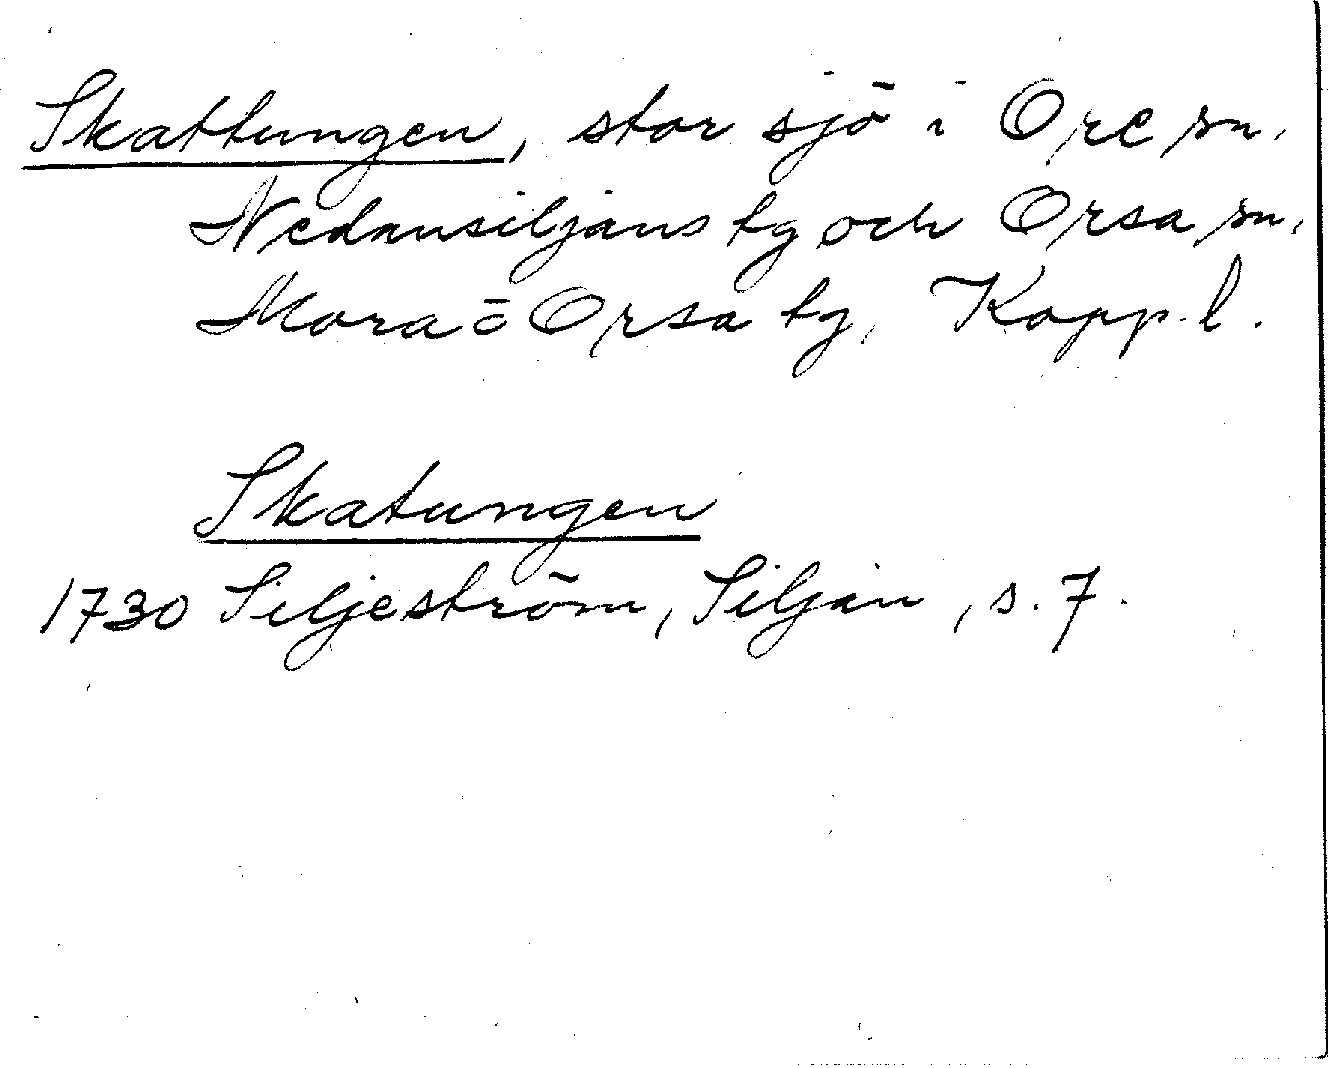 Skattungen, stor sjö i Ore sn,
Nedansiljans tg och Orsa sn,
Mora o Orsa tg, Kopp. l.
Skatungen
1730 Siljeström, Siljan, s. 7.